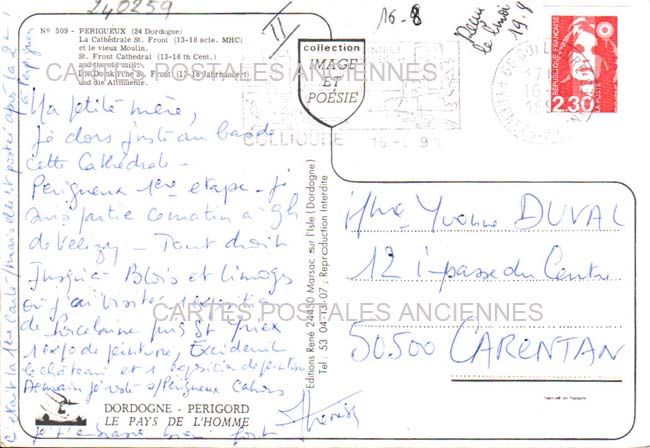 240259
II
16-8
Reçu
le lundi
19-8
N° 509 - PERIGUEUX (24 Dordogne)
La Cathédrale St. Front (13-18 scle. MHC)
et le vieux Moulin.
St. Front Cathedral (13-18 th Cent.)
and the old Mill.
Die Domkirche St. Front (13-18 Jahrhundert)
und die Altmuehle.
collection
IMAGE
ET
POÉSIE
COLLIOURE
16-
RÉPUBLIQUE FRANÇAISE
2,30
LA POSTE
CARTES POSTALES ANCIENNES
Ma petite mère,
Je dors juste au bas de
cette Cathédrale -
Perigueux 1ère etape - Je
suis partie ce matin à 9h
de Velizy - Tout droit
Jusqu'à Blois et Limoges
où j'ai visité 1 exposition
CARTES POSTALES ANCIENNES
de Porcelaine puis St Yriex
1 expo de peinture, Excideuil
le château et 1 exposition de peinture
Demain je visite Perigueux Cahors
Je t'embrasse bien fort
Thérèse
c'était la 1ère carte mais elle est postée après la 2è
à Perpignan
DORDOGNE - PERIGORD
LE PAYS DE L'HOMME
Editions René 24430 Marsac sur l'Isle (Dordogne)
Tél. 53 04-13-07 - Reproduction Interdite
Mme Yvonne DUVAL
12 impasse du Centre
CARTES POSTALES ANCIENNES
50500 CARENTAN